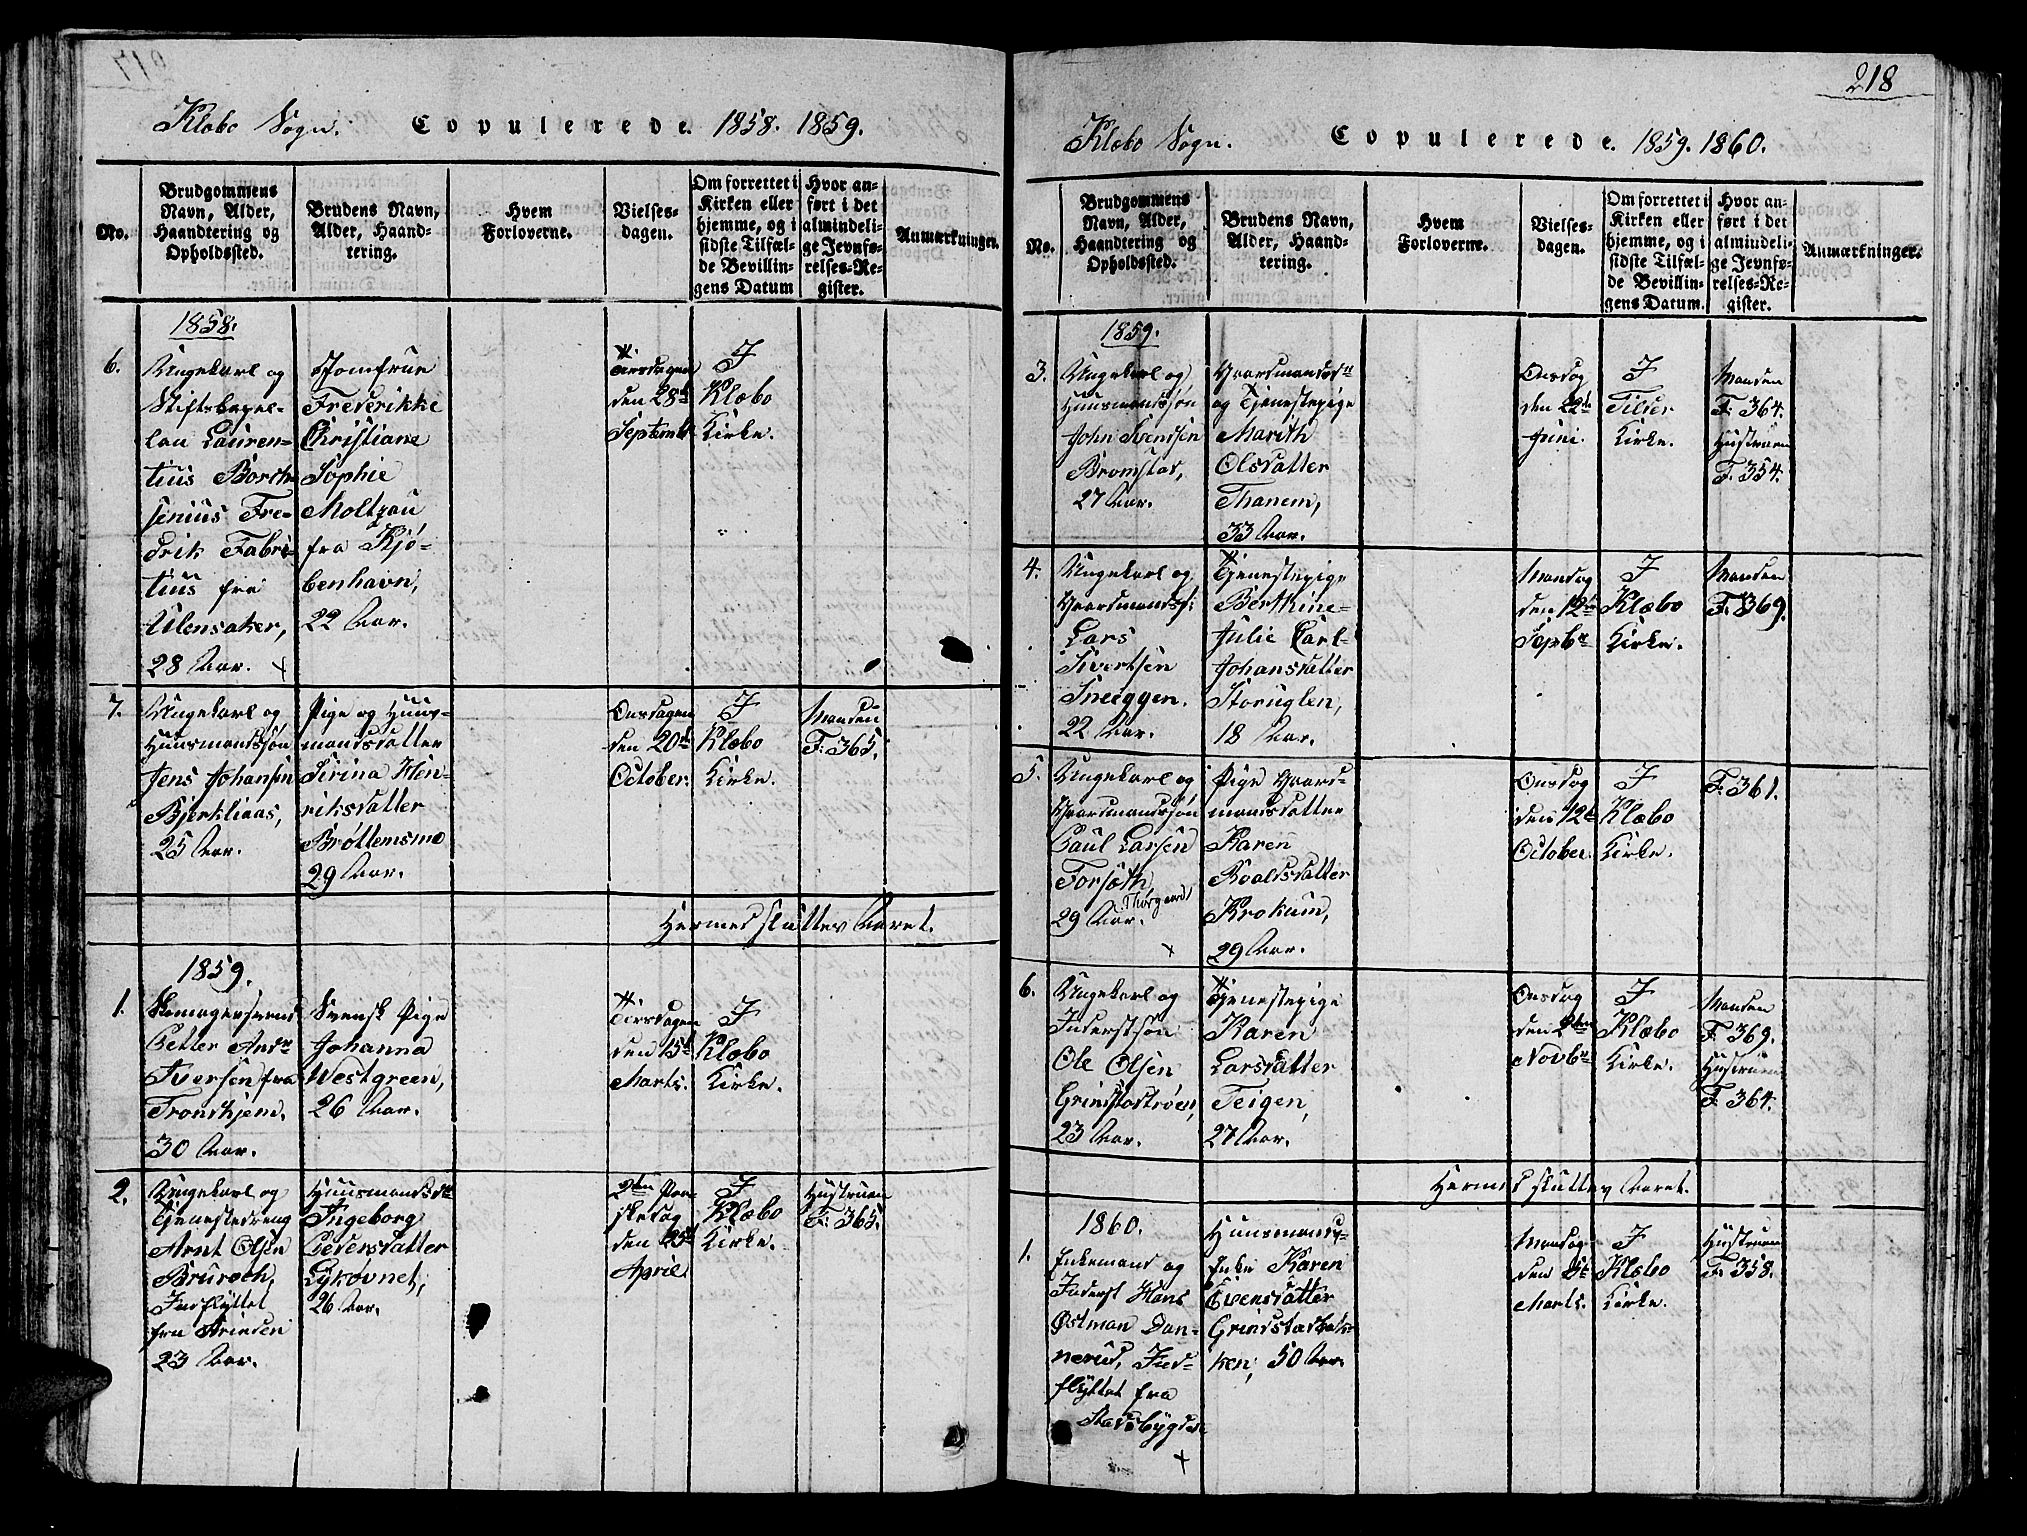 Klæbo Sogn. Copulerede. 1858. 1859.
No.
Brudgommens
Navn, Alder,
Haandtering og
Opholdssted.
Brudens Navn,
Alder, Haand-
tering.
Hvem
Forloverne.
Vielses-
dagen.
Om forrettet i
Kirken eller
hjemme, og i
sidste Tilfæl-
de Bevillin-
gens Datum
Hvor an-
ført i det
almindeli-
ge Jevnfø-
relses-Re-
gister.
Anmærkninger.
1858.
6.
Ungekarl og
Stiftskapel-
lan Lauren-
tius Borch-
senius Fre-
drik Fabri-
tius fra
Ulensaker,
28 Aar.
Jomfrue
Frederikke
Christiane
Sophie
Moltzau
fra Kjø-
benhavn,
22 Aar.
Tirsdagen
den 28de
Septemb.
I
Klæbo
Kirke.
7.
Ungekarl og
Huusmandssøn
Jens Johansen
Bjerkliaas,
25 Aar.
Pige og Huus-
mandsdatter
Sirina Hen-
riksdatter
Brøttemsmo
29 Aar.
Onsdagen
den 20de
October.
I
Klæbo
Kirke.
Manden
F: 365.
Hermed sluttes Aaret.
1859.
1.
Skomagersvend
Petter Andr.
Iversen fra
Trondhjem.
30 Aar.
Svensk Pige
Johanna
Westgreen,
26 Aar.
Tirsdagen
den 15de
Marts.
I
Klæbo
Kirke.
2.
Ungekarl og
Tjenestedreng
Arnt Olsen
Bruroch,
Indflyttet
fra
23 Aar.
Huusmandsdtr
Ingeborg
Pedersdatter
Lykøvnet,
26 Aar.
2den Paa-
skedag
den 25de
April
I
Klæbo
Kirke.
Hustruen
F: 365.
218
Klæbo Sogn. Copulerede. 1859. 1860.
No.
Brudgommens
Navn, Alder,
Haandtering og
Opholdssted.
Brudens Navn,
Alder, Haand-
tering.
Hvem
Forloverne.
Vielses-
dagen.
Om forrettet i
Kirken eller
hjemme, og i
sidste Tilfæl-
de Bevillin-
gens Datum.
Hvor an-
ført i det
almindeli-
ge Jevnfø-
relses-Re-
gister.
Anmærkninger.
1859.
3.
Ungekarl og
Huusmandssøn
John Svendsen
Bromstad,
27 Aar.
Gaardmandsdtr
og Tjenestepige
Marith
Olsdatter
Thanem,
33 Aar.
Onsdag
den 22de
Juni.
I
Tilder
Kirke.
Manden
F: 364.
Hustruen
F. 354.
4.
Ungekarl og
Gaardmandss:
Lars
Sivertsen
Sneeggen.
22 Aar.
Tjenestepige
Berthine-
Julie Carl-
Johansdatter
Storuglen,
18 Aar.
Mandag
den 12te
Sepbr
I
Klæbo
Kirke.
Manden
F. 369.
5.
Ungekarl og
Gaardmandssøn
Paul Larsen
Forsæth,
Thorgaard
29 Aar.
Pige Gaard-
mandsdatter
Karen
Roaldsdatter
Krokum,
29 Aar.
Onsdag
den 12te
October.
I
Klæbo
Kirke.
F. 361.
6.
Ungekarl og
Inderstsøn
Ole Olsen
Grindstadtrøen,
23 Aar.
Tjenestepige
Karen
Larsdatter
Teigen,
27 Aar.
Onsdag
den 2den
Novbr
I
Klæbo
Kirke.
Manden
F. 369.
Hustruen
F. 364.
Hermed sluttes Aaret.
1860.
1.
Enkemand og
Inderst Hans
Østman Dan-
nerud, Ind-
flyttet fra
Stadsbygden
Huusmands-
Enke Karen
Evensdatter
Grindstadbak-
ken, 50 Aar.
Mandag
den
Marts.
I
Klæbo
Kirke.
Hustruen
F. 358.